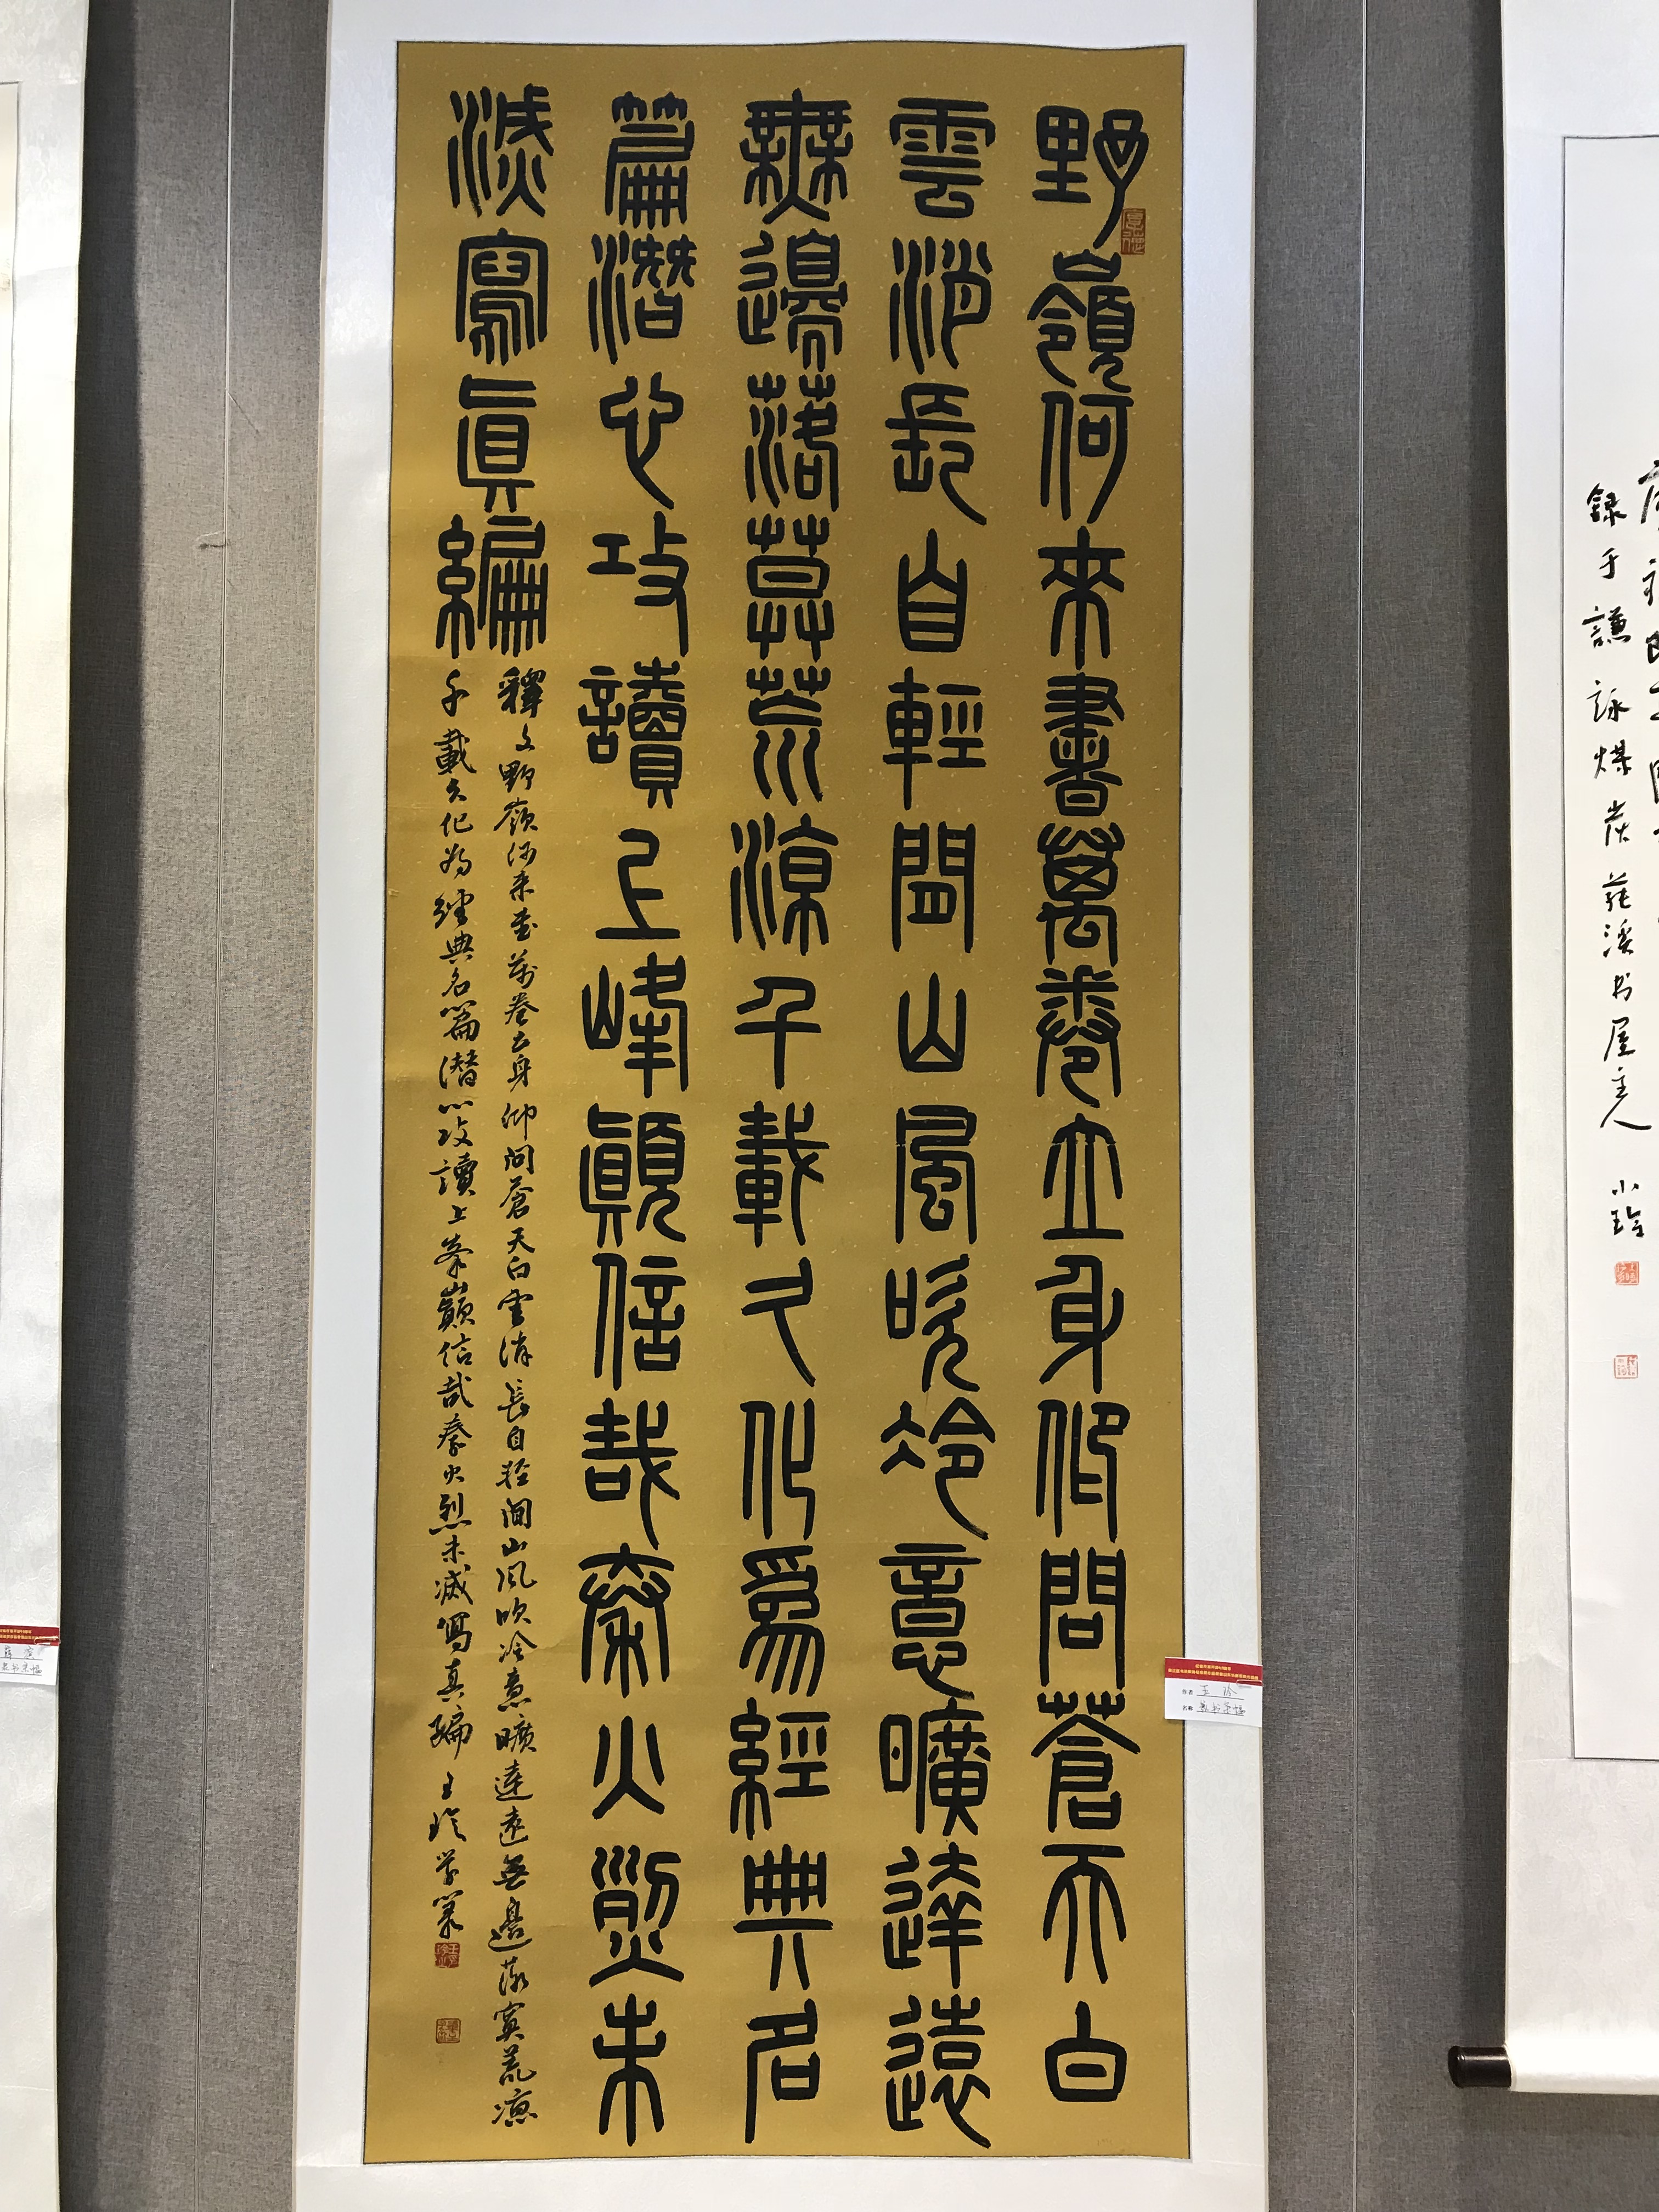 野嶺何來書萬卷立身仰問蒼天白
雲消長自輕閒山風吹冷意曠達遠
無邊落莫荒涼千載久化為經典名
篇潛心攻讀上峰顛信哉秦火烈未
滅寫真編
釋文野嶺何来書萬卷立身仰問蒼天白雲消長自輕閒山風吹冷意曠達遠無邊落寞荒凉
千載久化为經典名篇潛心攻讀上峯巔信哉秦火烈未滅寫真編 王玲学篆
作者 王玲
名称
錄于謙詠煤炭 莊溪书屋主人 小玲